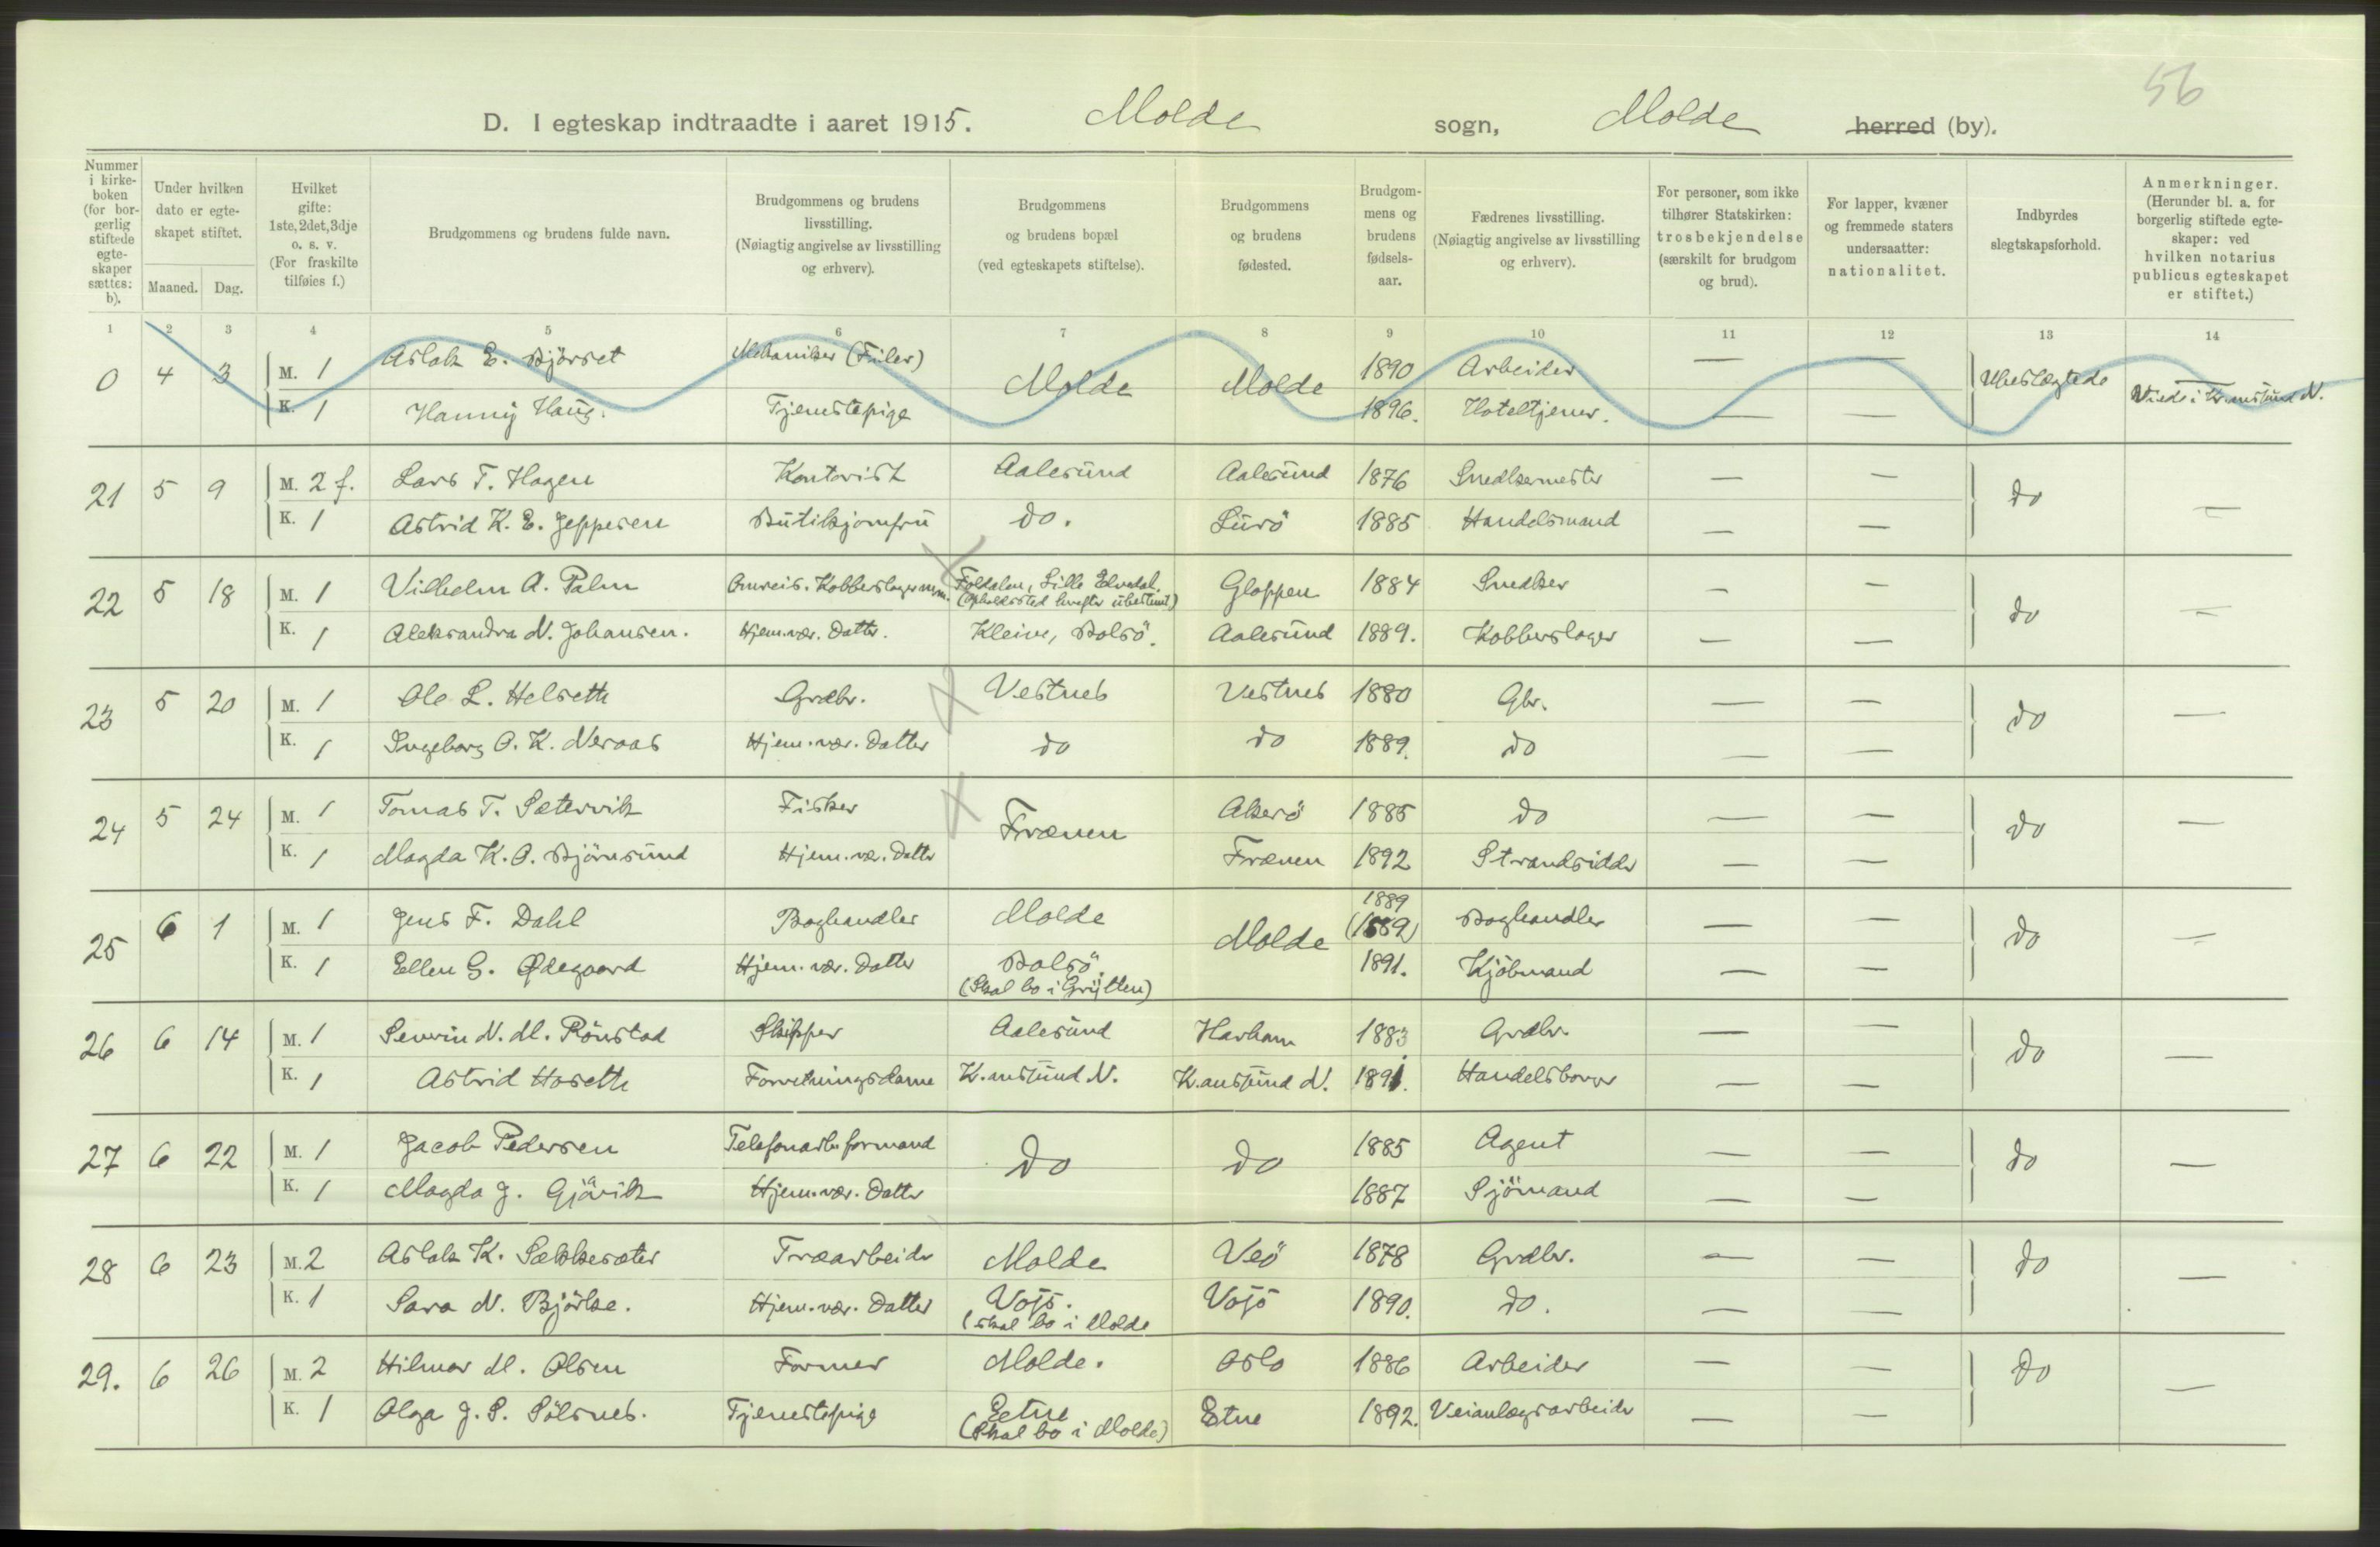 56
D. I egteskap indtraadte i aaret 1915. Molde sogn, Molde herred (by).
Nummer i kirke-boken (for bor-gerlig stiftede egte-skaper sættes: b).
Under hvilken dato er egte-skapet stiftet.
Maaned. Dag.
Hvilket gifte: 1ste, 2det, 3dje o. s. v. (For fraskilte tilføies f.)
Brudgommens og brudens fulde navn.
Brudgommens og brudens livsstilling. (Nøiagtig angivelse av livsstilling og erhverv).
Brudgommens og brudens bopæl (ved egteskapets stiftelse).
Brudgommens og brudens fødested.
Brudgom-mens og brudens fødsels-aar.
Fædrenes livsstilling. (Nøiagtig angivelse av livsstilling og erhverv).
For personer, som ikke tilhører Statskirken: trosbekjendelse (særskilt for brudgom og brud).
For lapper, kvæner og fremmede staters undersaatter: nationalitet.
Indbyrdes slegtskapsforhold.
Anmerkninger. (Herunder bl. a. for borgerlig stiftede egte-skaper: ved hvilken notarius publicus egteskapet er stiftet.)
1 2 3 4 5 6 7 8 9 10 11 12 13 14
0 4 3 M. 1 Aslak E. Bjørset Mekaniker (Filer) Molde Molde 1890 Arbeider — — Ubeslægtede Viede i Kr.ansund N.
K. 1 Hanny Haug. Tjenestepige 1896. Hoteltjener. — —
21 5 9 M. 2 f. Lars T. Hagen Kontorist Aalesund Aalesund 1876 Snedkermester — — do —
K. 1 Astrid K. E. Jeppesen Butikjomfru do. Lurö 1885 Handelsmand — —
22 5 18 M. 1 Vilhelm A. Palm Omreis. Kobberslager Foldalen, Lille Elvedal. (Opholdssted herefter ubestemt) Gloppen 1884 Snedker — — do —
K. 1 Aleksandra N. Johansen. Hjem.vær. Datter. Kleive, Bolsö. Aalesund 1889. Kobberslager — —
23 5 20 M. 1 Ole L. Helseth Grdbr. Vestnes Vestnes 1880 Gbr. — — do —
K. 1 Ingeborg O. K. Neraas Hjem.vær. Datter do do 1889. do — —
24 5 24 M. 1 Tomas T. Sætervik Fisker Frænen Akerö 1885 do — — do —
K. 1 Magda K. O. Björnsund Hjem.vær. Datter Frænen 1892 Strandsidder — —
25 6 1 M. 1 Jens F. Dahl Boghandler Molde Molde 1889 (1889) Boghandler — — do —
K. 1 Ellen G. Ødegaard Hjem.vær. Datter Bolsö (Skal bo i Grytten) 1891. Kjöbmand — —
26 6 14 M. 1 Severin N. M. Rönstad Skipper Aalesund Harham 1883 Grdbr. — — do —
K. 1 Astrid Hoseth Forretningsdame K.ansund N. K.ansund N. 1891. Handelsborger — —
27 6 22 M. 1 Jacob Pedersen Telefonarb. formand do do 1885 Agent — — do —
K. 1 Magda J. Gjövik Hjem.vær. Datter 1887 Sjömand — —
28 6 23 M. 2 Aslak K. Sækkesæter Træarbeider Molde Veö 1878 Grdbr. — — do —
K. 1 Sara N. Björke. Hjem.vær. Datter (skal bo i Molde 1890. do. — —
29. 6 26 M. 2 Hilmar M. Olsen Former Molde. Oslo 1886 Arbeider — — do —
K. 1 Olga J. S. Sölsnes. Tjenestepige Etne (Skal bo i Molde) Etne 1892. Veianlægsarbeider — —